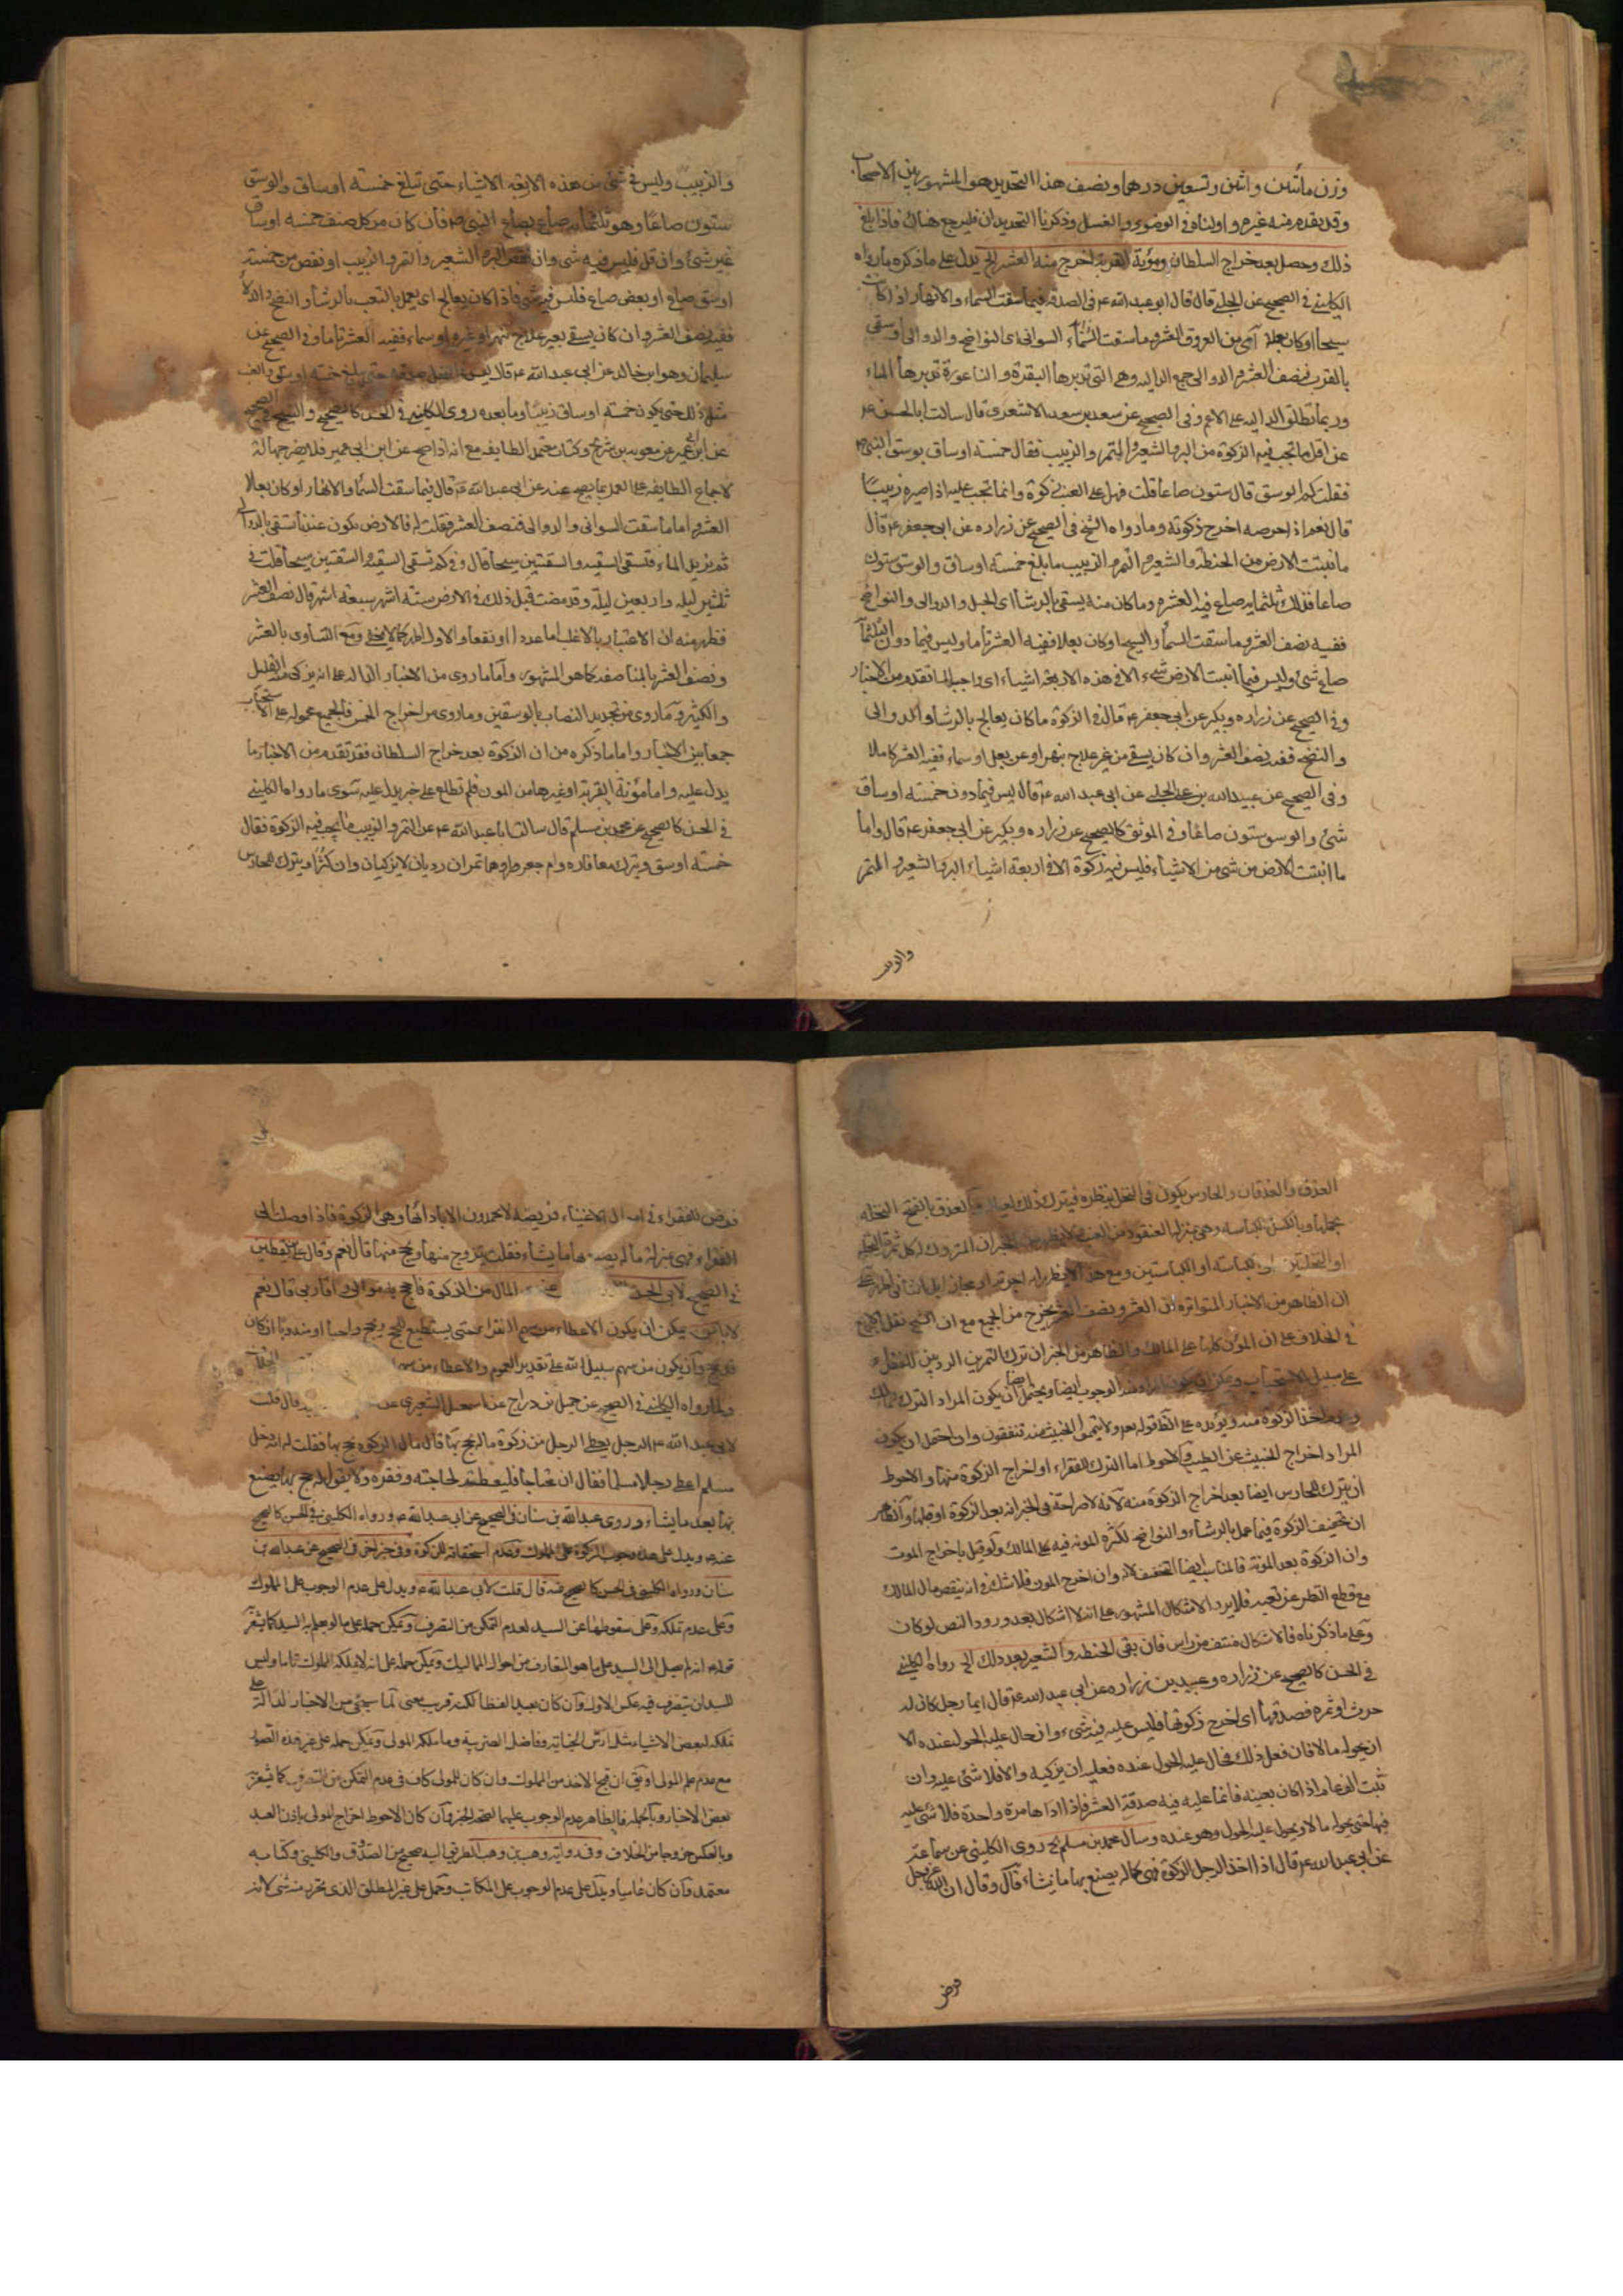 وزن مأتين واثنين وتسعين درهما ونصف هذا التحديد هو المشهور بين الاصحاب
وقد تقدم منه غيره واولناه في الوضوء والغسل وذكرنا التحديدات فليرجع هناك فاذا بلغ
ذلك وحصل بعد خراج السلطان ومؤنة القرية اخرج منه العشر الخ يدل على ما ذكره ما رواه
الكليني في الصحيح عن الحلبي قال قال ابو عبد الله ع في الصدقة فيما سقت السماء والانهار اذا كانت
سيحا او كان بعلا اي من العروق العشر وما سقت السواني اي النواضح والدوالي او سقي
بالغرب فنصف العشر والدوالي جمع الدالية وهي التي تديرها البقرة والناعورة تديرها الماء
وربما تطلق الدالية على الاعم وفي الصحيح عن سعد بن سعد الاشعري قال سالت ابا الحسن ع
عن اقل ما تجب فيه الزكوة من البر والشعير والتمر والزبيب فقال خمسة اوساق بوسق النبي ص
فقلت كم الوسق قال ستون صاعا قلت فهل على العنب زكوة وانما تجب عليه اذا صيره زبيبا
قال نعم اذا خرصه اخرج زكوته وما رواه الشيخ في الصحيح عن زراره عن ابي جعفر ع قال
ما انبتت الارض من الحنطة والشعير والتمر والزبيب ما بلغ خمسة اوساق والوسق ستون
صاعا فذلك ثلثمایة صاع ففيه العشر وما كان منه يسقى بالرشا اى الحبل والدوالى والنواضح
ففيه نصف العشر وما سقت السماء والسيح او كان بعلا ففيه العشر تاما وليس فيما دون الثلثمائة
صاع شئ وليس فيما انبتت الارض شئ الا في هذه الاربعة اشياء اى واجبا لما تقدم من الاخبار
وفي الصحيح عن زراره وبكير عن ابي جعفر ع قال في الزكوة ما كان يعالج بالرشا والدوالى
والنضح ففيه نصف العشر وان كان يسقى من غير علاج بنهر او عين او بعل او سماء ففيه العشر كاملا
وفي الصحيح عن عبيد الله بن على الحلبي عن ابي عبد الله ع قال ليس فيما دون خمسة اوساق
شئ والوسق ستون صاعا وفي الموثق كالصحيح عن زراره وبكير عن ابي جعفر ع قال واما
ما انبتت الارض من شئ من الاشياء فليس فيه زكوة الا في اربعة اشياء البر والشعير والتمر
والزبيب
والزبيب وليس في شئ من هذه الاربعة الاشياء حتى تبلغ خمسة اوساق والوسق
ستون صاعا وهو ثلثمایة صاع بصاع النبي ص فان كان من كل صنف خمسة اوساق
غير شئ وان قل فليس فيه شئ وان نقص البر والشعير والتمر والزبيب او نقص من خمسة
اوسق صاع او بعض صاع فليس فيه شئ فاذا كان يعالج اى يعمل بالتعب بالرشا والنضح والدلاء
ففيه نصف العشر وان كان يسقى بغير علاج بنهر او غيره او سماء ففيه العشر تاما وفي الصحيح عن
سليمان وهو ابن خالد عن ابي عبد الله ع قال ليس في النخل صدقة حتى يبلغ خمسة اوساق والعنب
مثل ذلك حتى يكون خمسة اوساق زبيبا وما بعده روى الكليني في الحسن كالصحيح والشيخ في الصحيح
عن ابن ابي عمير عن معوية بن شريح وكتاب معتمد الطايفه مع انه اذا صح عن ابن ابي عمير فلا يضر جهالة
لاجماع الطايفه على العمل بما يصح عنه عن ابي عبد الله ع قال فيما سقت السماء والانهار او كان بعلا
العشر واما ما سقت السوانى والدوالى فنصف العشر فقلت له فالارض تكون عندنا تسقى بالدوالى
ثم يزيد الماء فتسقى السقية والسقيتين سيحا قال وفي كم تسقى السقية والسقيتين سيحا قلت في
ثلثين ليلة واربعين ليلة وقد مضت قبل ذلك في الارض ستة اشهر سبعة اشهر قال نصف العشر
فظهر منه ان الاعتبار بالاغلب اما عددا او نفعا والاول اظهر كما لا يخفى ومع التساوى بالعشر
ونصف العشر بالمناصفه كما هو المشهور واما ما روى من الاخبار الدالة على انه يزكى من القليل
والكثير وما روى من تحديد النصاب بالوسقين وما روى من اخراج الخمس فالجميع محمولة على الاستحباب
جمعا بين الاخبار واما ما ذكره من ان الزكوة بعد خراج السلطان فقد تقدم من الاخبار ما
يدل عليه واما مؤنة القرية او غيرها من المون فلم نطلع على خبر يدل عليه سوى ما رواه الكليني
في الحسن كالصحيح عن محمد بن مسلم قال سالت ابا عبد الله ع عن التمر والزبيب ما تجب فيه الزكوة فقال
خمسة اوسق ويترك معافاره وام جعرور وهما تمران رديان لا يزكيان وان كثرا ويترك للحارس
العذق والعذقان والحارس يكون في النخل ينظره فيترك ذلك لعياله العذق بالفتح النخلة
بحملها وبالكسر الكباسة وهي بمنزلة العنقود من العنب الجبران المتروك كل ثمرة النخلة
او النخلتين او الكباسة او الكباستين ومع هذا
ان الظاهر من الاخبار المتواترة ان العشر ونصف العشر يخرج من الجميع مع ان الشيخ نقل الاجماع
في الخلاف على ان المؤن كلها على المالك والظاهر من الخبر ان ترك التمرين الرديين للفقراء
على سبيل الاستحباب ويمكن ان يكون الوجوب ايضا ويحتمل ان يكون المراد الترك
اخذ الزكوة منه ويؤيده قوله تعه ولا تيمموا الخبيث منه تنفقون وان احتمل ان يكون
المراد اخراج الخبيث عن الطيب والاحوط اما الترك للفقراء او اخراج الزكوة منها والاحوط
ان يترك للحارس ايضا بعد اخراج الزكوة منه لانه لا صراحة في الخبر انه بعد الزكوة او قبلها والظاهر
ان تخفيف الزكوة فيما عمل بالرشاء والنواضح لكثرة المونة فيه على المالك ولو قيل باخراج الموت
وان الزكوة بعد المونة فالمناسب ايضا التخفيف لانه وان اخرج المون فلا شك في انه ينقص مال المالك
مع قطع النظر عن تعبه فلا يرد الاشكال المشهور على انه لا اشكال بعد ورود النص لو كان
وعلى ما ذكرناه فالاشكال منتف من راس فان بقى الحنطة والشعير بعد ذلك الخ رواه الكليني
في الحسن كالصحيح عن زراره وعبيد بن زراره عن ابي عبد الله ع قال ايما رجل كان له
حرث او ثمره فصدقها اى اخرج زكوتها فليس عليه فيه شئ وان حال عليه الحول عنده الا
ان يحوله مالا فان فعل ذلك فحال عليه الحول عنده فعليه ان يزكيه والا فلا شئ عليه وان
ثبت الف عام اذا كان بعينه فانما عليه فيه صدقة العشر فاذا اداها مرة واحدة فلا شئ عليه
فيها حتى يحوله مالا ويحول عليه الحول وهو عنده وسال محمد بن مسلم الخ روى الكليني عن سماعة
عن ابي عبد الله ع قال اذا اخذ الرجل الزكوة فهى كماله يصنع بها ما يشاء قال وقال ان الله عز وجل
فرض
فرض للفقراء في اموال الاغنياء فريضة لا يحمدون الا باداءها وهي الزكوة فاذا وصلت الى
الفقراء فهى بمنزلة ماله يصنع بها ما يشاء فقلت يتزوج منها ويحج منها قال نعم وقال على بن يقطين
في الصحيح لابي الحسن المال من الزكوة فاحج به موالى واقاربى قال نعم
لا باس يمكن ان يكون الاعطاء من سهم الفقراء حتى يستطيع للحج ويحج واجبا او مندوبا ان كان
وان يكون من سهم سبيل الله على تقدير العموم والاعطاء من
ولما رواه الكليني في الصحيح عن جميل بن دراج عن اسمعيل الشعيرى عن قال قلت
لابي عبد الله ع الرجل يعطى الرجل من زكوة ماله يحج بها قال مال الزكوة يحج بها فقلت له انه رجل
مسلم اعطى رجلا مسلما فقال ان كان محتاجا فليعطه لحاجته وفقره ولا يقول له حج بها يصنع
بها بعد ما يشاء وروى عبد الله بن سنان في الصحيح عن ابي عبد الله ع ورواه الكليني في الحسن كالصحيح
عنه ع ويدل على عدم وجوب الزكوة على المملوك وعدم استحقاقه للزكوة وفي خبر اخر في الصحيح عن عبد الله بن
سنان ورواه الكليني في الحسن كالصحيح عنه قال قلت لابي عبد الله ع ويدل على عدم الوجوب على المملوك
وعلى عدم تملكه وعلى سقوطها عن السيد لعدم التمكن من التصرف ويمكن حمله على ما لو لم يعلم به السيد كما يشعر
قوله ع انه لم يصل الى السيد على ما هو المتعارف من احوال المماليك ويمكن حمله على انه لا يملكه المملوك تاما وليس
للسيد ان يتصرف فيه عكس الاول وان كان بعيدا لفظا لكنه قريب معنى لما سيجئ من الاخبار الدالة على
تملكه لبعض الاشياء مثل ارش الجناية وفاضل الضريبة وما ملكه المولى ويمكن حمله على غير هذه الصور
مع عدم علم المولى او يق ان قبح الاخذ من المملوك وان كان للمولى كاف في عدم التمكن من التصرف كما يشعر
بعض الاخبار وبالجملة فالظاهر عدم الوجوب عليهما لصحة الخبر وان كان الاحوط اخراج المولى باذن العبد
وبالعكس خروجا من الخلاف وفي رواية وهب بن وهب الطريق اليه صحيح من الصدوق والكليني وكتابه
معتمد وان كان عاميا ويدل على عدم الوجوب على المكاتب وحمل على غير المطلق الذي تحرر منه شئ لانه